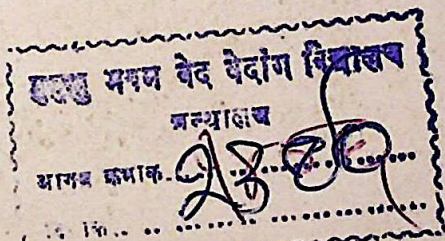 मुमुक्षु भवन वेद वेदांग विद्यालय
ग्रन्थालय
आगत क्रमाक
दि